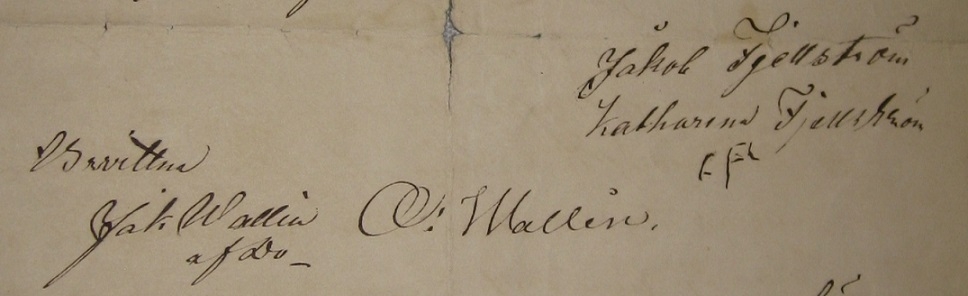 Jakob Fjellström
Katharina Fjellström
Bevittna
Jak Wallin O. Wallin.
af Do